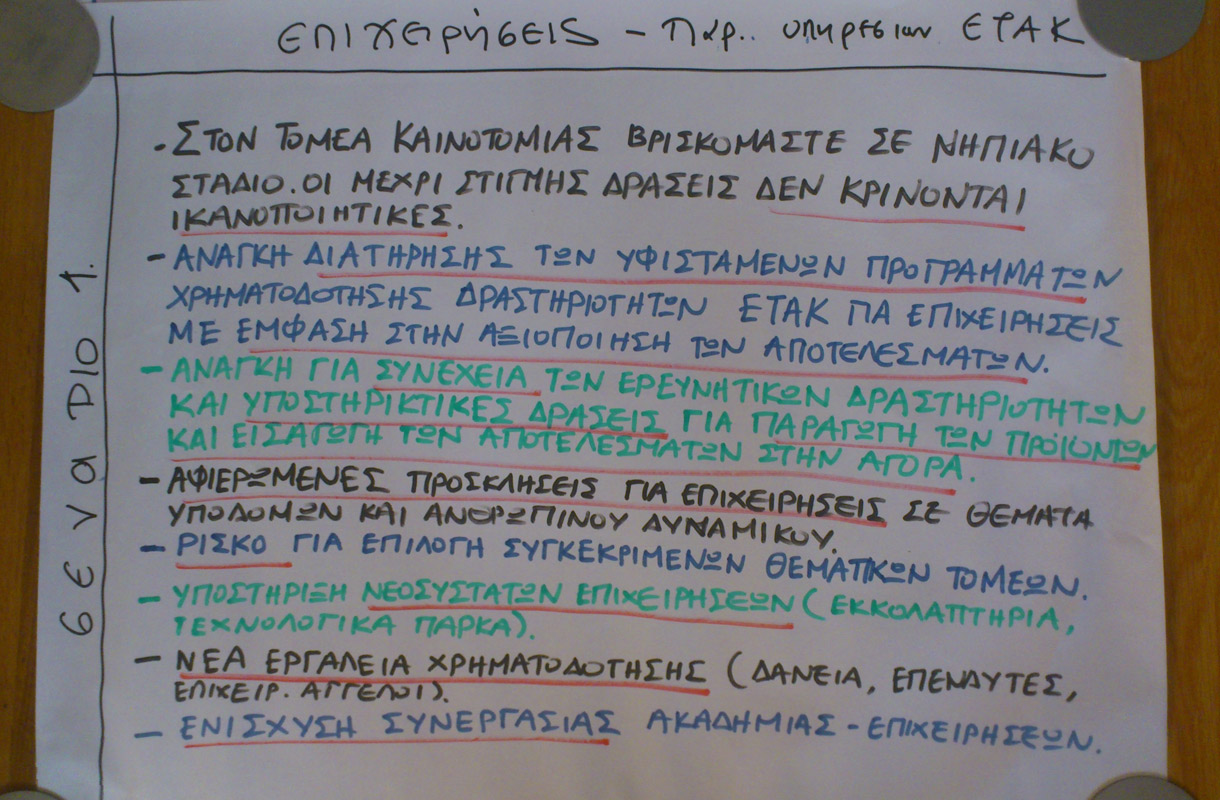 επιχειρήσεις - Παρ.. υπηρεσιων ΕΤΑΚ
σεναριο 1.
. ΣΤΟΝ ΤΟΜΕΑ ΚΑΙΝΟΤΟΜΙΑΣ ΒΡΙΣΚΟΜΑΣΤΕ ΣΕ ΝΗΠΙΑΚΟ
ΣΤΑΔΙΟ. ΟΙ ΜΕΧΡΙ ΣΤΙΓΜΗΣ ΔΡΑΣΕΙΣ ΔΕΝ ΚΡΙΝΟΝΤΑΙ
ΙΚΑΝΟΠΟΙΗΤΙΚΕΣ.
- ΑΝΑΓΚΗ ΔΙΑΤΗΡΗΣΗΣ ΤΩΝ ΥΦΙΣΤΑΜΕΝΩΝ ΠΡΟΓΡΑΜΜΑΤΩΝ
ΧΡΗΜΑΤΟΔΟΤΗΣΗΣ ΔΡΑΣΤΗΡΙΟΤΗΤΩΝ ΕΤΑΚ ΓΙΑ ΕΠΙΧΕΙΡΗΣΕΙΣ
ΜΕ ΕΜΦΑΣΗ ΣΤΗΝ ΑΞΙΟΠΟΙΗΣΗ ΤΩΝ ΑΠΟΤΕΛΕΣΜΑΤΩΝ.
- ΑΝΑΓΚΗ ΓΙΑ ΣΥΝΕΧΕΙΑ ΤΩΝ ΕΡΕΥΝΗΤΙΚΩΝ ΔΡΑΣΤΗΡΙΟΤΗΤΩΝ
ΚΑΙ ΥΠΟΣΤΗΡΙΚΤΙΚΕΣ ΔΡΑΣΕΙΣ ΓΙΑ ΠΑΡΑΓΩΓΗ ΤΩΝ ΠΡΟΪΟΝΤΩΝ
ΚΑΙ ΕΙΣΑΓΩΓΗ ΤΩΝ ΑΠΟΤΕΛΕΣΜΑΤΩΝ ΣΤΗΝ ΑΓΟΡΑ.
- ΑΦΙΕΡΩΜΕΝΕΣ ΠΡΟΣΚΛΗΣΕΙΣ ΓΙΑ ΕΠΙΧΕΙΡΗΣΕΙΣ ΣΕ ΘΕΜΑΤΑ
ΥΠΟΔΟΜΩΝ ΚΑΙ ΑΝΘΡΩΠΙΝΟΥ ΔΥΝΑΜΙΚΟΥ.
- ΡΙΣΚΟ ΓΙΑ ΕΠΙΛΟΓΗ ΣΥΓΚΕΚΡΙΜΕΝΩΝ ΘΕΜΑΤΙΚΩΝ ΤΟΜΕΩΝ.
- ΥΠΟΣΤΗΡΙΞΗ ΝΕΟΣΥΣΤΑΤΩΝ ΕΠΙΧΕΙΡΗΣΕΩΝ (ΕΚΚΟΛΑΠΤΗΡΙΑ,
ΤΕΧΝΟΛΟΓΙΚΑ ΠΑΡΚΑ).
- ΝΕΑ ΕΡΓΑΛΕΙΑ ΧΡΗΜΑΤΟΔΟΤΗΣΗΣ (ΔΑΝΕΙΑ, ΕΠΕΝΔΥΤΕΣ,
ΕΠΙΧΕΙΡ. ΑΓΓΕΛΟΙ).
- ΕΝΙΣΧΥΣΗ ΣΥΝΕΡΓΑΣΙΑΣ ΑΚΑΔΗΜΙΑΣ - ΕΠΙΧΕΙΡΗΣΕΩΝ.